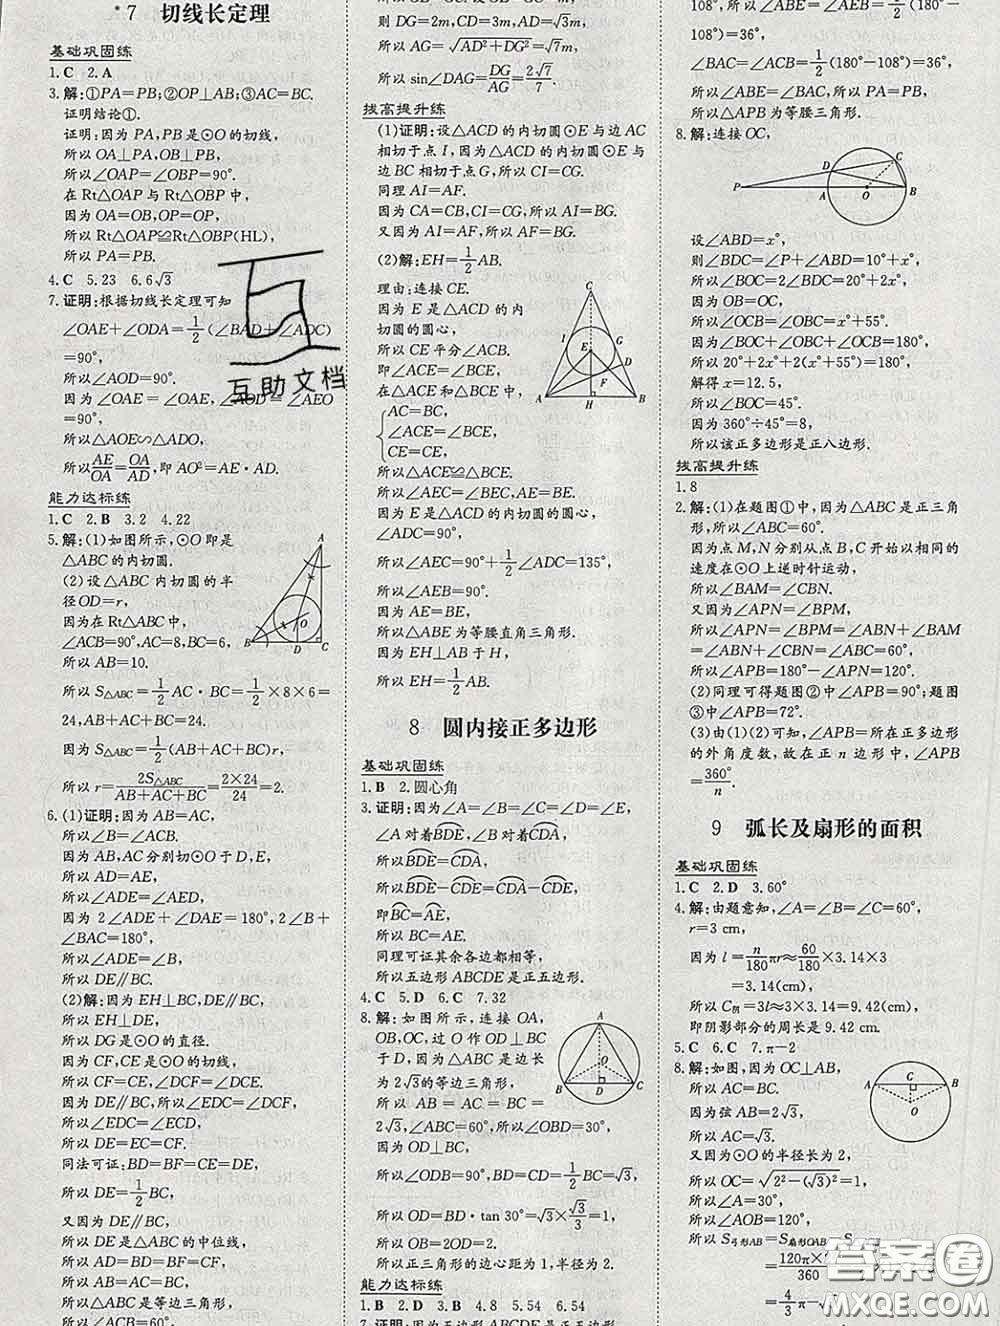 *7 切线长定理
基础巩固练
1.C 2.A
3.解:①PA=PB;②OP⊥AB;③AC=BC.
证明结论①.
证明:因为PA,PB是⊙O的切线,
所以OA⊥PA,OB⊥PB,
所以∠OAP=∠OBP=90°.
在Rt△OAP与Rt△OBP中,
因为OA=OB,OP=OP,
所以Rt△OAP≌Rt△OBP(HL),
所以PA=PB.
4.C 5.23 6.6√3
7.证明:根据切线长定理可知
∠OAE+∠ODA=1/2(∠BAD+∠ADC)
=90°,
所以∠AOD=90°.
因为∠OAE=∠OAE,∠AOD=∠AEO
=90°,
所以△AOE∽△ADO,
所以AE/OA=OA/AD,即AO²=AE·AD.
能力达标练
1.C 2.B 3.2 4.22
5.解:(1)如图所示,⊙O即是
△ABC的内切圆.
(2)设△ABC内切圆的半
径OD=r,
因为在Rt△ABC中,
∠ACB=90°,AC=8,BC=6,
所以AB=10.
A
O
B D C
所以S△ABC=1/2AC·BC=1/2×8×6=
24,AB+AC+BC=24.
因为S△ABC=1/2(AB+AC+BC)r,
所以r=2S△ABC/(AB+AC+BC)=2×24/24=2.
6.(1)证明:因为AB=AC,
因为AB,AC分别切⊙O于D,E,
所以AD=AE,
所以∠ADE=∠AED,
因为2∠ADE+∠DAE=180°,2∠B+
∠BAC=180°,
所以∠ADE=∠B,
所以DE∥BC.
(2)解:因为EH⊥BC,DE∥BC,
所以EH⊥DE,
所以DG是⊙O的直径.
因为CF,CE是⊙O的切线,
所以CF=CE,∠EDC=∠EDCF,
因为DE∥BC,所以∠EDC=∠DCF,
所以∠EDC=∠ECD,
所以DE=EC=CF.
同法可证:BD=BF=CE=DE,
所以DE=1/2BC,
又因为DE∥BC,
所以DE是△ABC的中位线,
所以AD=BD=BF=CF,
所以AB=AC=BC,
所以△ABC是等边三角形,
所以∠ACB=60°.
所以DG=2m,CD=2m,AD=√3m,
所以AG=√AD²+DG²=√7m,
所以sin∠DAG=DG/AG=2√7/7.
拔高提升练
(1)证明:设△ACD的内切圆⊙E与边AC
相切于点I,因为△ACD的内切圆⊙E与
边BC相切于点G,所以CI=CG.
同理AI=AF.
因为CA=CB,CI=CG,所以AI=BG.
又因为AI=AF,所以AF=BG.
(2)解:EH=1/2AB.
理由:连接CE.
因为E是△ACD的内
切圆的圆心,
所以CE平分∠ACB.
即∠ACE=∠BCE,
在△ACE和△BCE中,
AC=BC,
∠ACE=∠BCE,
CE=CE,
C
I
E
F D
A H B
所以△ACE≌△BCE.
所以∠AEC=∠BEC,AE=BE,
因为E是△ACD的内切圆的圆心,
∠ADC=90°,
所以∠AEC=90°+1/2∠ADC=135°,
所以∠AEB=90°.
因为AE=BE,
所以△ABE为等腰直角三角形.
因为EH⊥AB于H,
所以EH=1/2AB.
8 圆内接正多边形
基础巩固练
1.B 2.圆心角
3.证明:因为∠A=∠B=∠C=∠D=∠E,
∠A对着BDE,∠B对着CDA,
所以BDE=CDA,
所以BDE−CDE=CDA−CDE,
即BC=AE,
所以BC=AE.
同理可证其余各边都相等,
所以五边形ABCDE是正五边形.
4.C 5.D 6.C 7.32
8.解:如图所示,连接OA,
OB,OC,过O作OD⊥BC
于D,因为△ABC是边长
为2√3的等边三角形,
所以AB=AC=BC=
2√3,∠ABC=60°,所以∠OBD=30°,
因为OD⊥BC,
A
O
B D C
所以∠ODB=90°,BD=CD=1/2BC=√3,
所以OD=BD·tan30°=√3×√3/3=1,
所以OB=2OD=2.
所以正三角形的边心距为1,半径为2.
能力达标练
1.B 2.D 3.B 4.8 5.54 6.54
108°,所以∠ABE=∠AEB=1/2(180°−
108°)=36°,
∠BAC=∠BCA=1/2(180°−108°)=36°,
所以∠BAP=∠ABP,所以AP=BP,
所以△ABP为等腰三角形.
8.解:连接OC,
C
D
P A O B
设∠ABD=x°,
则∠BDC=∠P+∠ABD=10°+x°,
所以∠BOC=2∠BDC=20°+2x°,
因为OB=OC,
所以∠OCB=∠OBC=x°+55°.
因为∠BOC+∠OBC+∠OCB=180°,
所以20°+2x°+2(x°+55°)=180°,
解得x=12.5,
所以∠BOC=45°.
因为360°÷45°=8,
所以该正多边形是正八边形.
拔高提升练
1.8
2.解:(1)在题图①中,因为△ABC是正三角
形,所以∠ABC=60°.
因为点M,N分别从点B,C开始以相同的
速度在⊙O上逆时针运动,
所以∠BAM=∠CBN.
又因为∠APN=∠BPM,
所以∠APN=∠BPM=∠ABN+∠BAM
=∠ABN+∠CBN=∠ABC=60°,
所以∠APB=180°−∠APN=120°.
(2)同理可得题图②中∠APB=90°;题图
③中∠APB=72°.
(3)由(1)(2)可知,∠APB=所在正多边形
的外角度数,故在正n边形中,∠APB=
360°/n.
9 弧长及扇形的面积
基础巩固练
1.C 2.D 3.60°
4.解:由题意知,∠A=∠B=∠C=60°,
r=3 cm,
因为l=n/180πr≈60/180×3.14×3
=3.14(cm),
所以C阴=3l≈3×3.14=9.42(cm),
即阴影部分的周长是9.42 cm.
5.C 6.C 7.π−2
8.解:如图,因为OC⊥AB,
所以AC=BC.
因为弦AB=2√3,
所以AC=√3.
A C B
O
又因为⊙O的半径长为2,
所以OC=√2²−(√3)²=1,
所以∠A=30°,
所以∠AOB=120°,
所以S弓形AB=S扇形OAB−S
=120π×
360
=4/3π−√3.
互助文档
答案圈
MXQE.COM